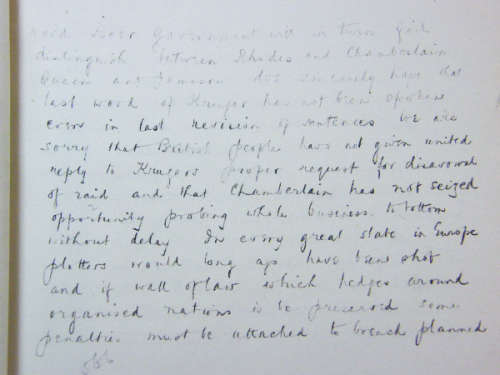 raid Boer Government will in turn
distinguish between Rhodes and Chamberlain
Queen and Jameson does sincerely hope that
last word of Kruger has not been spoken
even in last revision of sentences We are
sorry that British people have not given united
reply to Krugers proper request for disavowal
of raid and that Chamberlain has not seized
opportunity probing whole business to bottom
without delay In every great state in Europe
plotters would long ago have been shot
and if wall of law which hedges around
organised nations is to be preserved some
penalties must be attached to breach planned